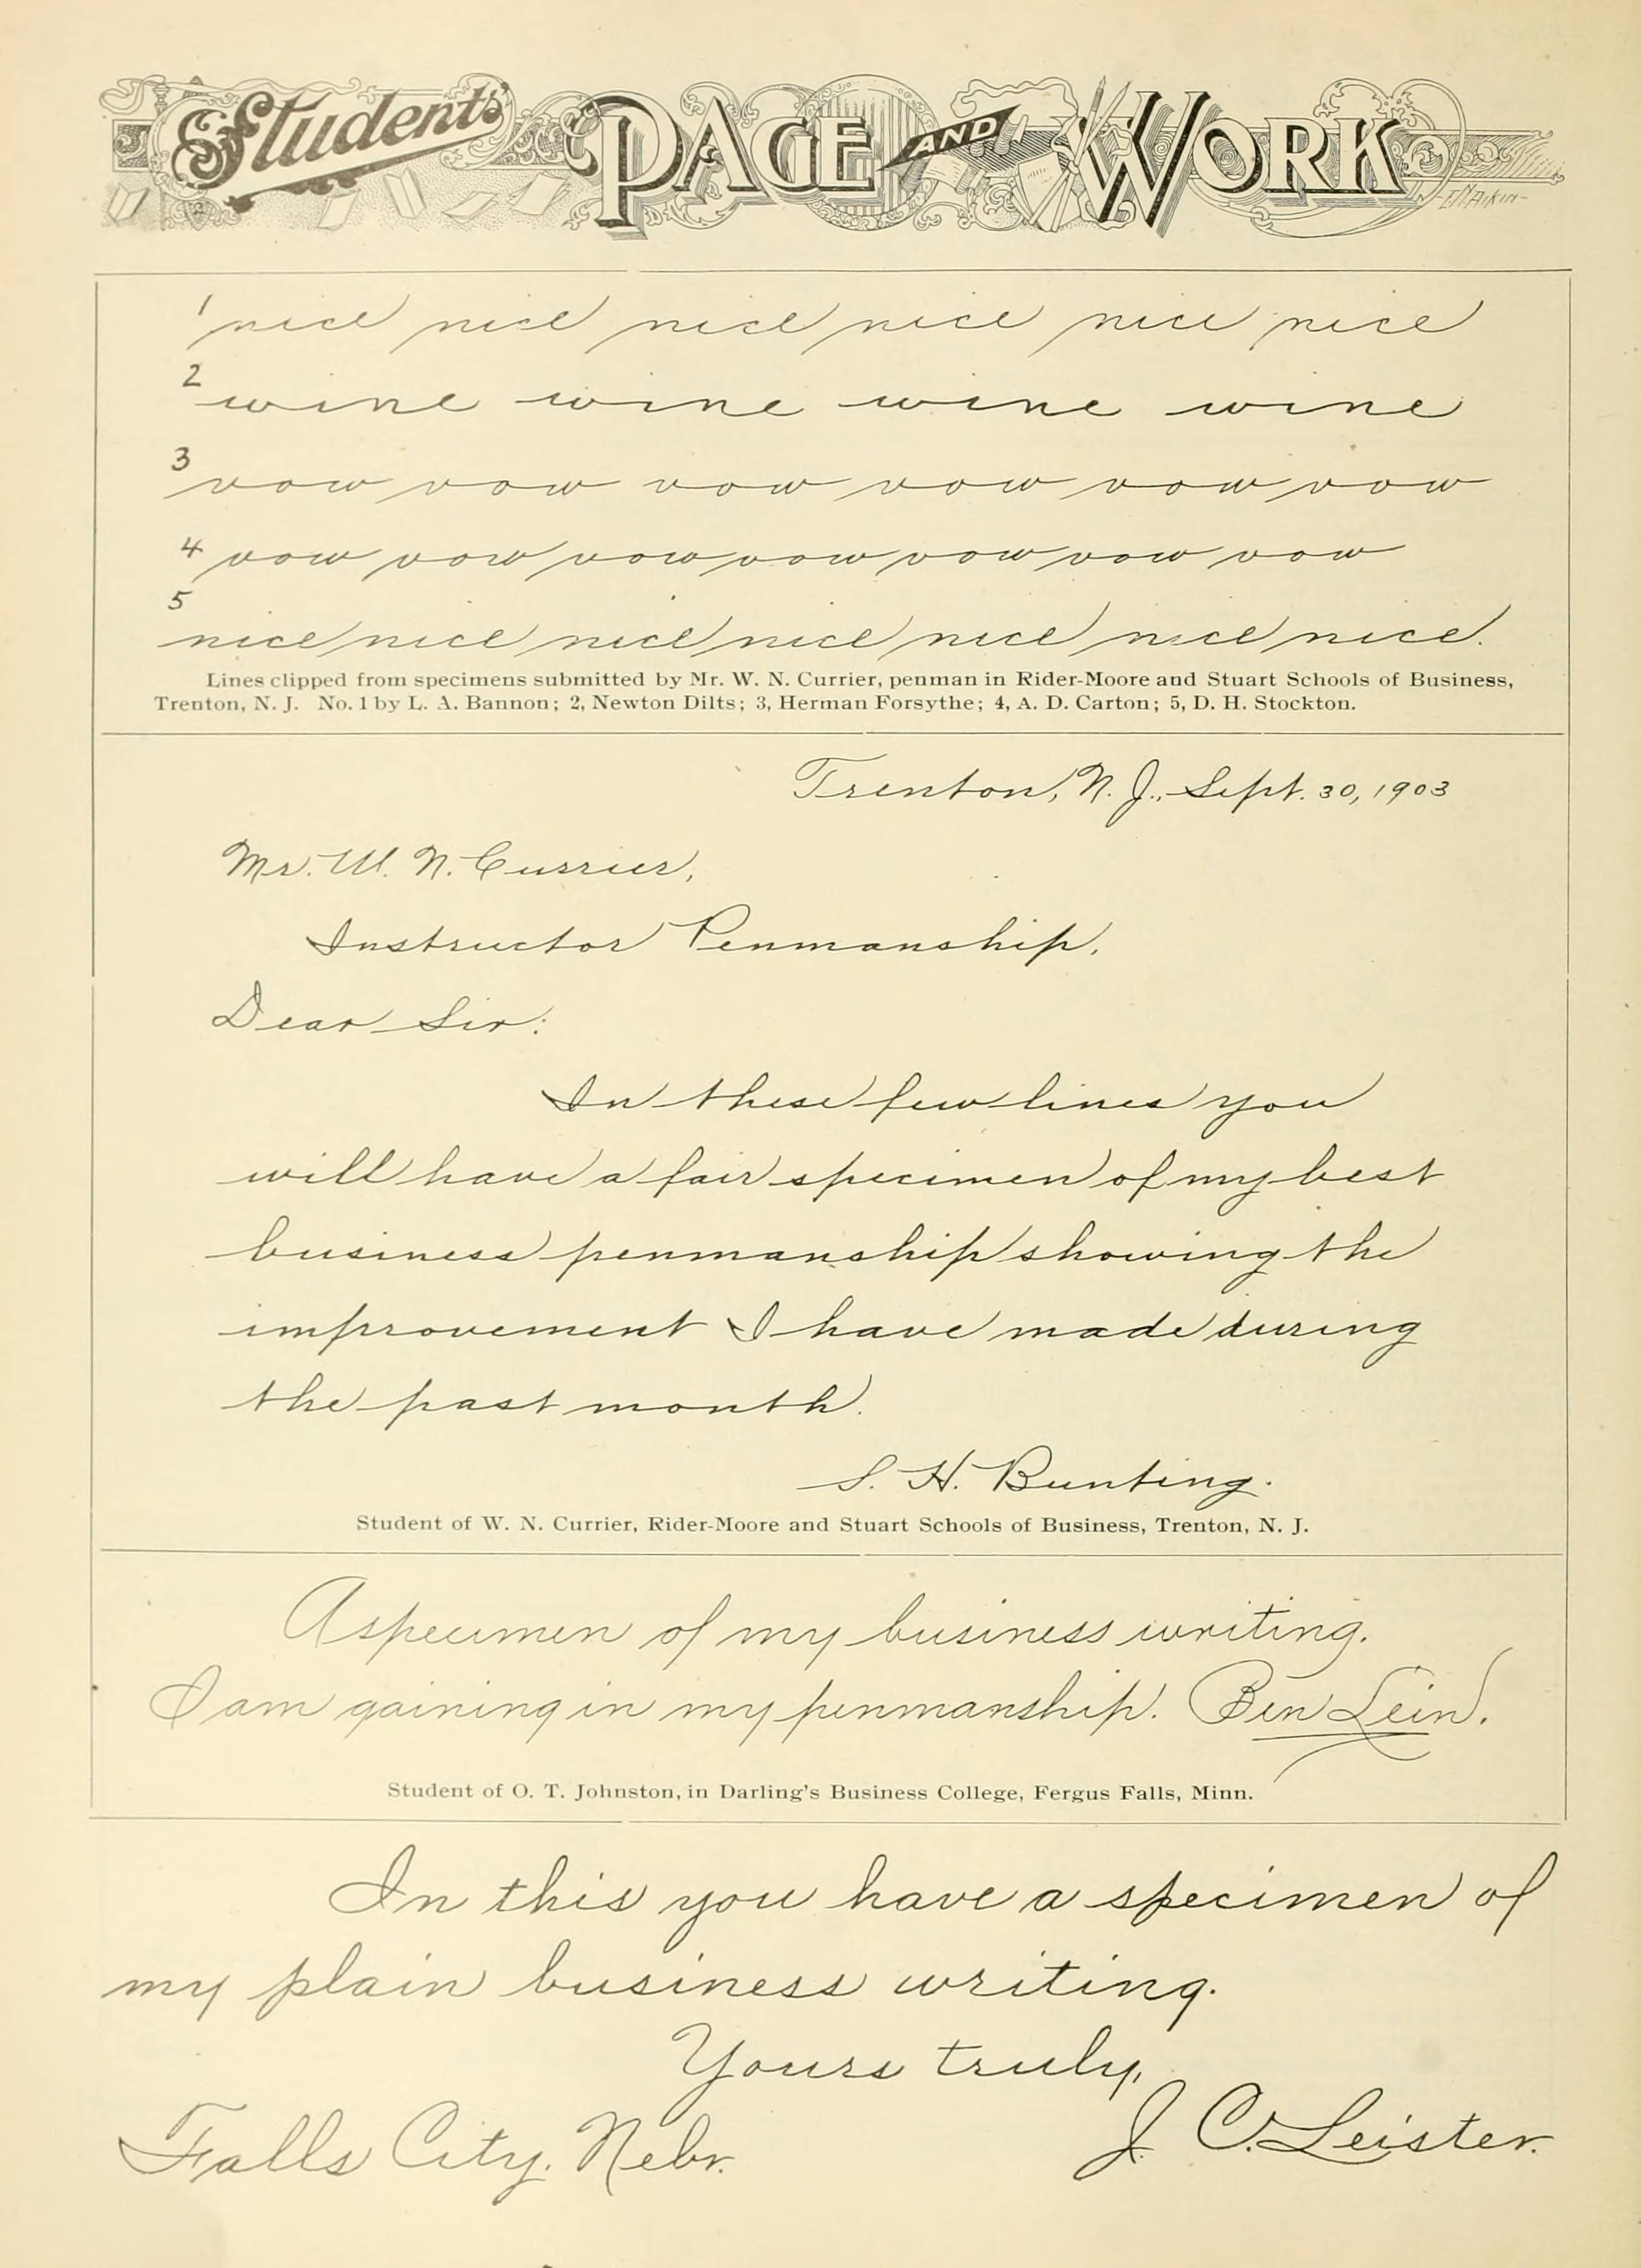 Students' PAGE AND WORK
1 nice nice nice nice nice nice
2 wine wine wine wine
3 vow vow vow vow vow vow
4 vow vow vow vow vow vow vow
5
nice nice nice nice nice nice nice.
Lines clipped from specimens submitted by Mr. W. N. Currier, penman in Rider-Moore and Stuart Schools of Business,
Trenton, N. J. No. 1 by L. A. Bannon; 2, Newton Dilts; 3, Herman Forsythe; 4, A. D. Carton; 5, D. H. Stockton.
Trenton, N. J., Sept. 30, 1903
Mr. W. N. Currier,
Instructor Penmanship,
Dear Sir:
In these few lines you
will have a fair specimen of my best
business penmanship showing the
improvement I have made during
the past month.
S. H. Bunting.
Student of W. N. Currier, Rider-Moore and Stuart Schools of Business, Trenton, N. J.
A specimen of my business writing.
I am gaining in my penmanship. Ben Lein.
Student of O. T. Johnston, in Darling's Business College, Fergus Falls, Minn.
In this you have a specimen of
my plain business writing.
Yours truly,
Falls City, Nebr. J. C. Leister.